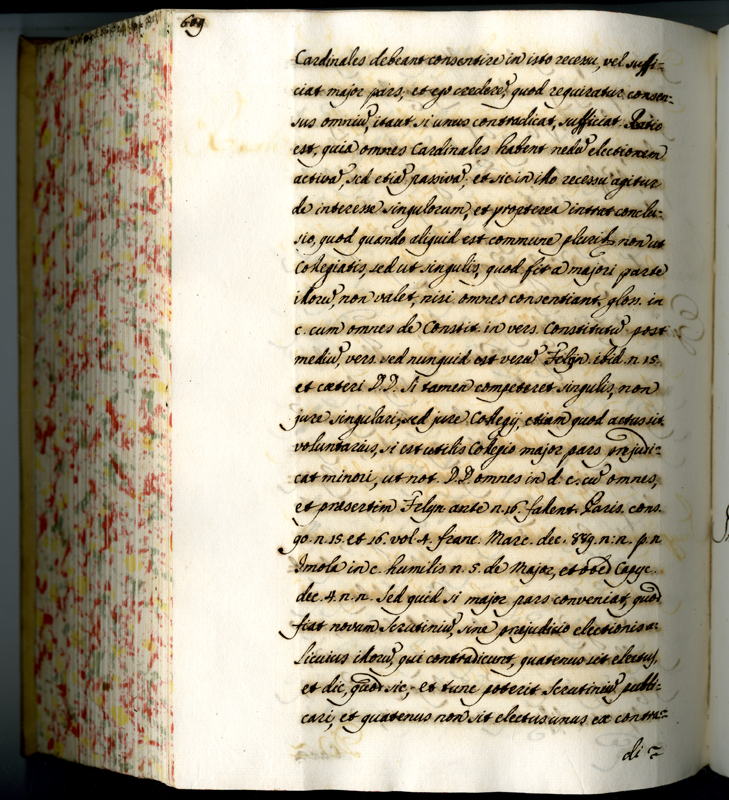 609
Cardinales debeant consentire in isto recessu, vel suffi-
ciat major pars, et ego crederẽ, quod requiratur consen-
sus omniũ, itaut si unus contradicat, sufficiat. Ratio
est, quia omnes Cardinales habent nedũ electionem
activã, sed etiã passivã, et sic in illo recessu agitur
de interesse singulorum, et propterea intrat conclu-
sio, quod quando aliquid est commune plurib. non ut
Collegiatis, sed ut singulis, quod fit a majori parte
illorũ, non valet, nisi omnes consentiant, glos. in
c. cum omnes de Constit. in vers. Constitutũ post
mediũ, vers. sed nunquid est verũ Felyn. ibid. n. 15.
et cæteri D.D. Si tamen competeret singulis, non
jure singulari, sed jure Collegij, etiam quod actus sit
voluntarius, si est utilis Collegio major pars prejudi-
cat minori, ut not. D.D. omnes in d. c. cũ omnes,
et presertim Felyn. ante n. 16. fallent. Paris. cons.
90. n. 15. et 16. vol. 4. franc. Marc. dec. 889. n: n. p. n
Imola in c. humilis n. 5. de Major, et obed. Capyc.
dec. 4. n. n. Sed quid si major pars conveniat, quod
fiat novum Scrutiniũ, sine prejudicio electionis a-
licuius illorũ, qui contradicunt, quatenus sit electus,
et dic, quod sic, et tunc poterit Scrutiniũ publi-
cari, et quatenus non sit electus unus ex contra-
di